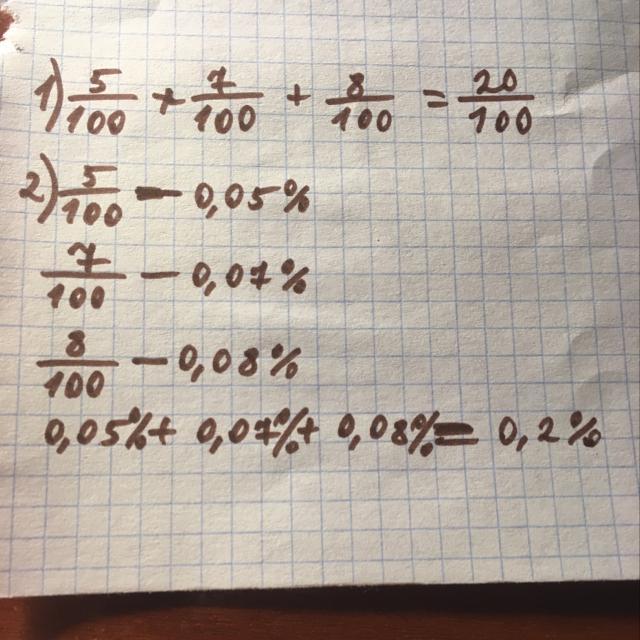 1) 5/100 + 7/100 + 8/100 = 20/100
2) 5/100 — 0,05%
7/100 — 0,07%
8/100 — 0,08%
0,05% + 0,07% + 0,08% = 0,2%